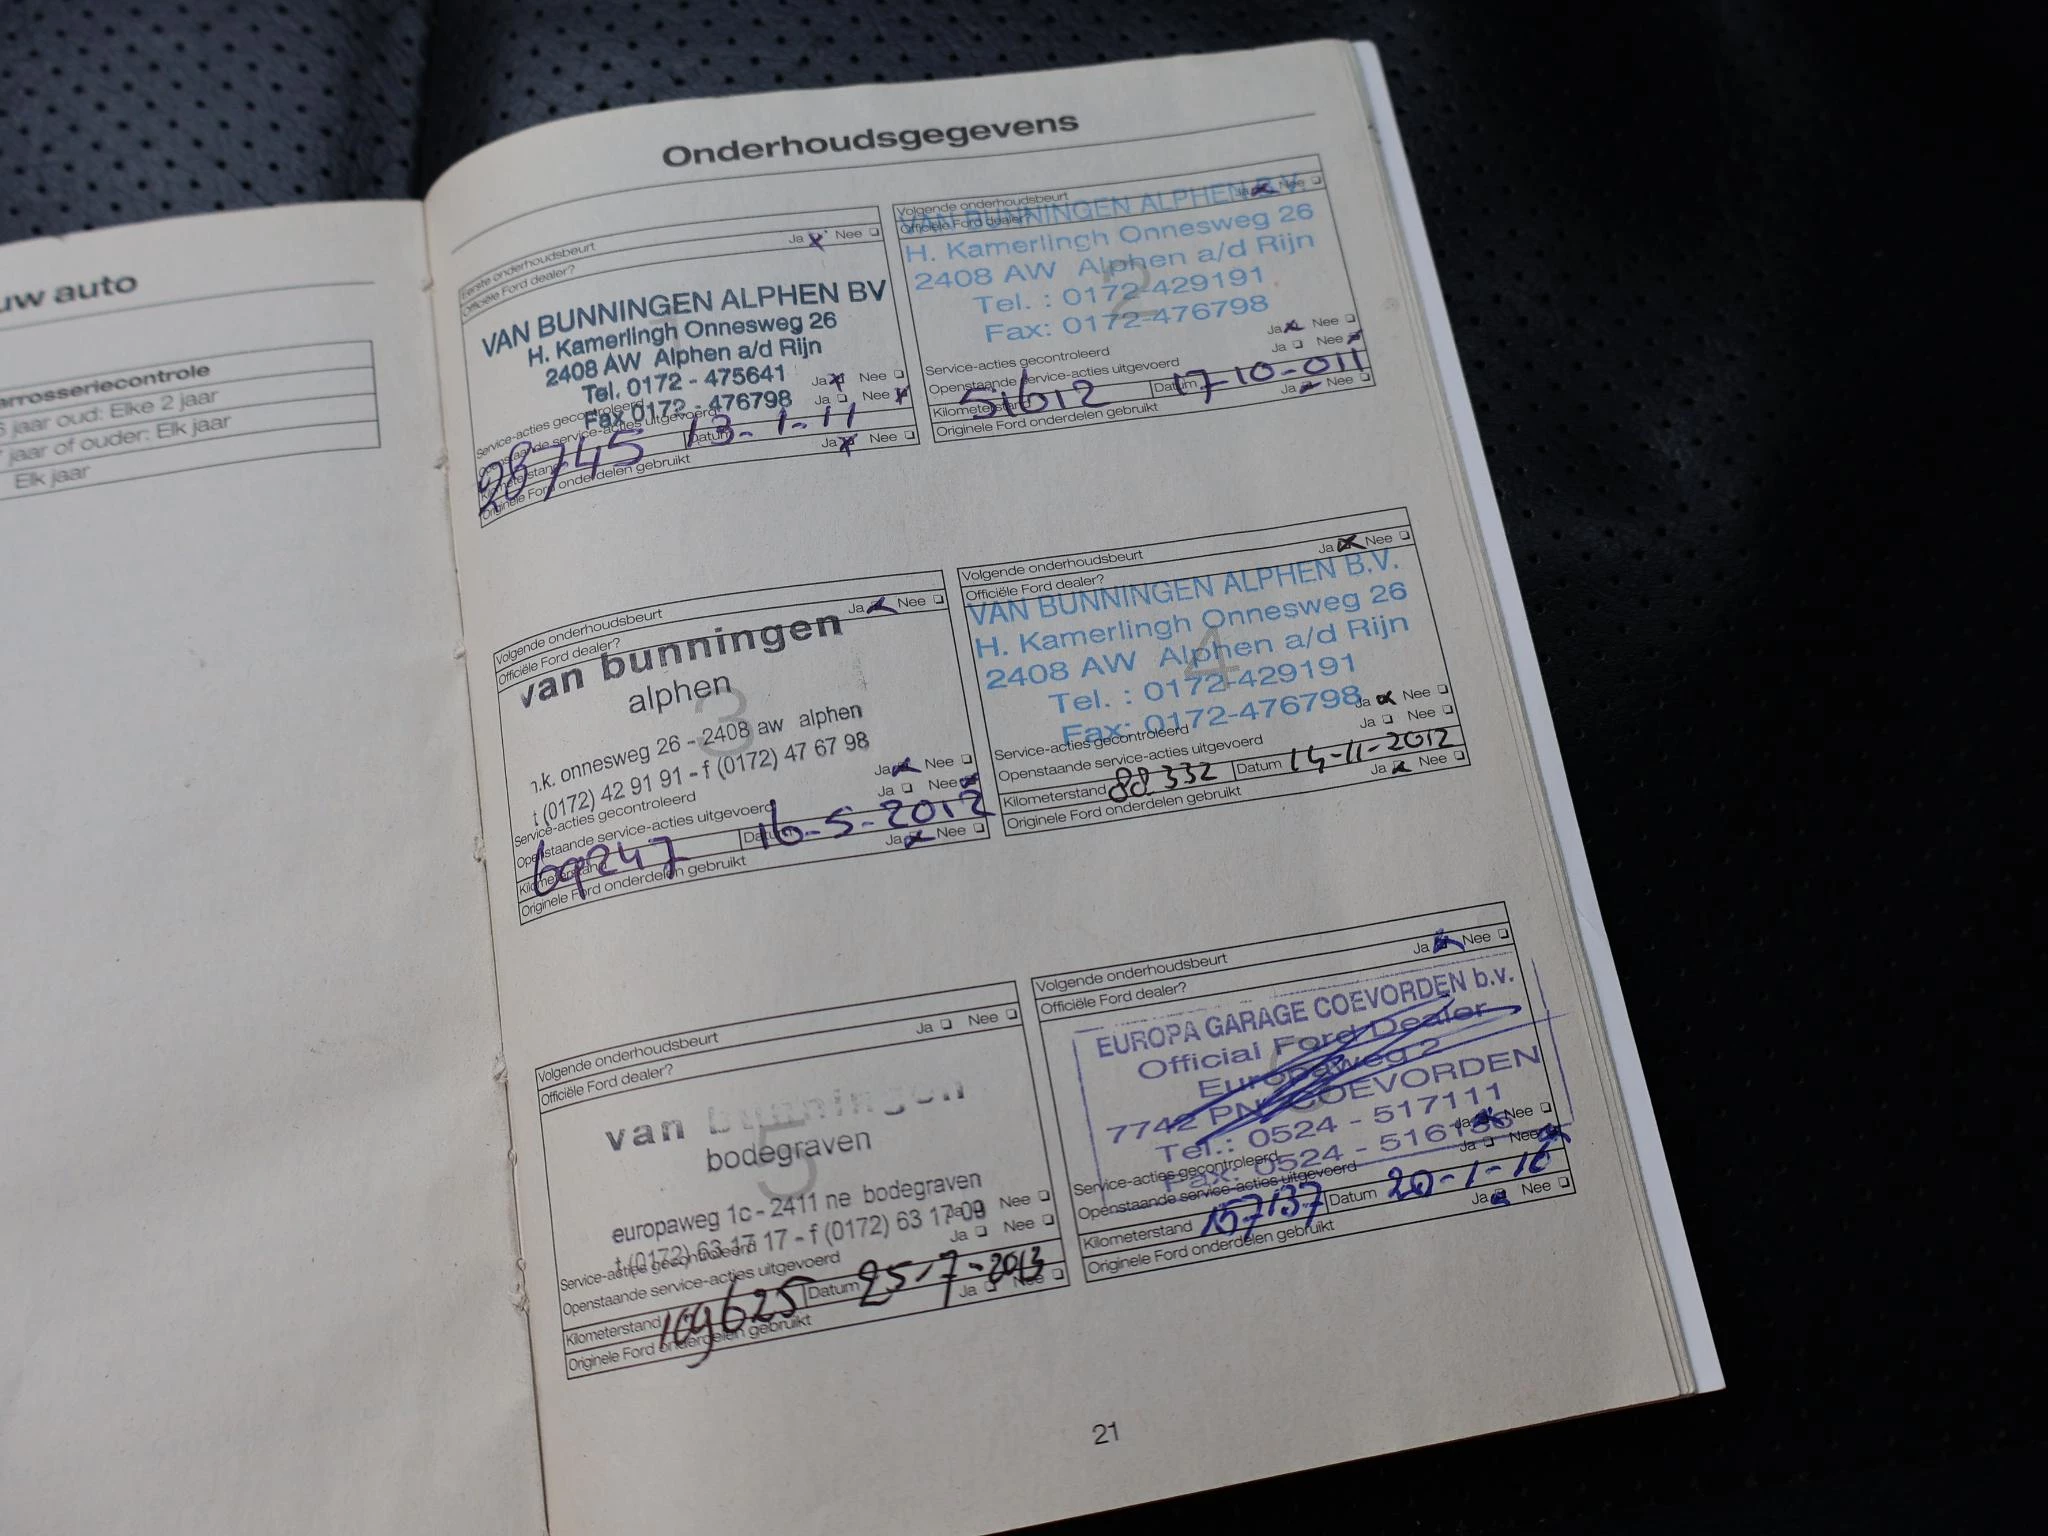 uw auto
arrosseriecontrole
6 jaar oud: Elke 2 jaar
jaar of ouder: Elk jaar
Elk jaar
Onderhoudsgegevens
Eerste onderhoudsbeurt
Officiële Ford dealer? Ja Nee
1
VAN BUNNINGEN ALPHEN BV
H. Kamerlingh Onnesweg 26
2408 AW Alphen a/d Rijn
Tel. 0172 - 475641
Fax 0172 - 476798
Service-acties gecontroleerd Ja Nee
Openstaande service-acties uitgevoerd Ja Nee
Kilometerstand 28745 Datum 13-1-11
Originele Ford onderdelen gebruikt Ja Nee
Volgende onderhoudsbeurt
Officiële Ford dealer? Ja Nee
2
VAN BUNNINGEN ALPHEN B.V.
H. Kamerlingh Onnesweg 26
2408 AW Alphen a/d Rijn
Tel. : 0172-429191
Fax: 0172-476798
Service-acties gecontroleerd Ja Nee
Openstaande service-acties uitgevoerd Ja Nee
Kilometerstand 51612 Datum 17-10-011
Originele Ford onderdelen gebruikt Ja Nee
Volgende onderhoudsbeurt
Officiële Ford dealer? Ja Nee
3
van bunningen
alphen
h.k. onnesweg 26 - 2408 aw alphen
t (0172) 42 91 91 - f (0172) 47 67 98
Service-acties gecontroleerd Ja Nee
Openstaande service-acties uitgevoerd Ja Nee
Kilometerstand 69247 Datum 16-5-2012
Originele Ford onderdelen gebruikt Ja Nee
Volgende onderhoudsbeurt
Officiële Ford dealer? Ja Nee
4
VAN BUNNINGEN ALPHEN B.V.
H. Kamerlingh Onnesweg 26
2408 AW Alphen a/d Rijn
Tel. : 0172-429191
Fax: 0172-476798
Service-acties gecontroleerd Ja Nee
Openstaande service-acties uitgevoerd Ja Nee
Kilometerstand 88332 Datum 14-11-2012
Originele Ford onderdelen gebruikt Ja Nee
Volgende onderhoudsbeurt
Officiële Ford dealer? Ja Nee
5
van bunningen
bodegraven
europaweg 1c - 2411 ne bodegraven
t (0172) 63 17 17 - f (0172) 63 17 09
Service-acties gecontroleerd Ja Nee
Openstaande service-acties uitgevoerd Ja Nee
Kilometerstand 109625 Datum 25-7-2013
Originele Ford onderdelen gebruikt Ja Nee
Volgende onderhoudsbeurt
Officiële Ford dealer? Ja Nee
EUROPA GARAGE COEVORDEN b.v.
Official Ford Dealer
Europaweg 2
7742 PN COEVORDEN
Tel.: 0524 - 517111
Fax: 0524 -
Service-acties gecontroleerd Ja Nee
Openstaande service-acties uitgevoerd Ja Nee
Kilometerstand 157137 Datum 20-1-16
Originele Ford onderdelen gebruikt Ja Nee
21